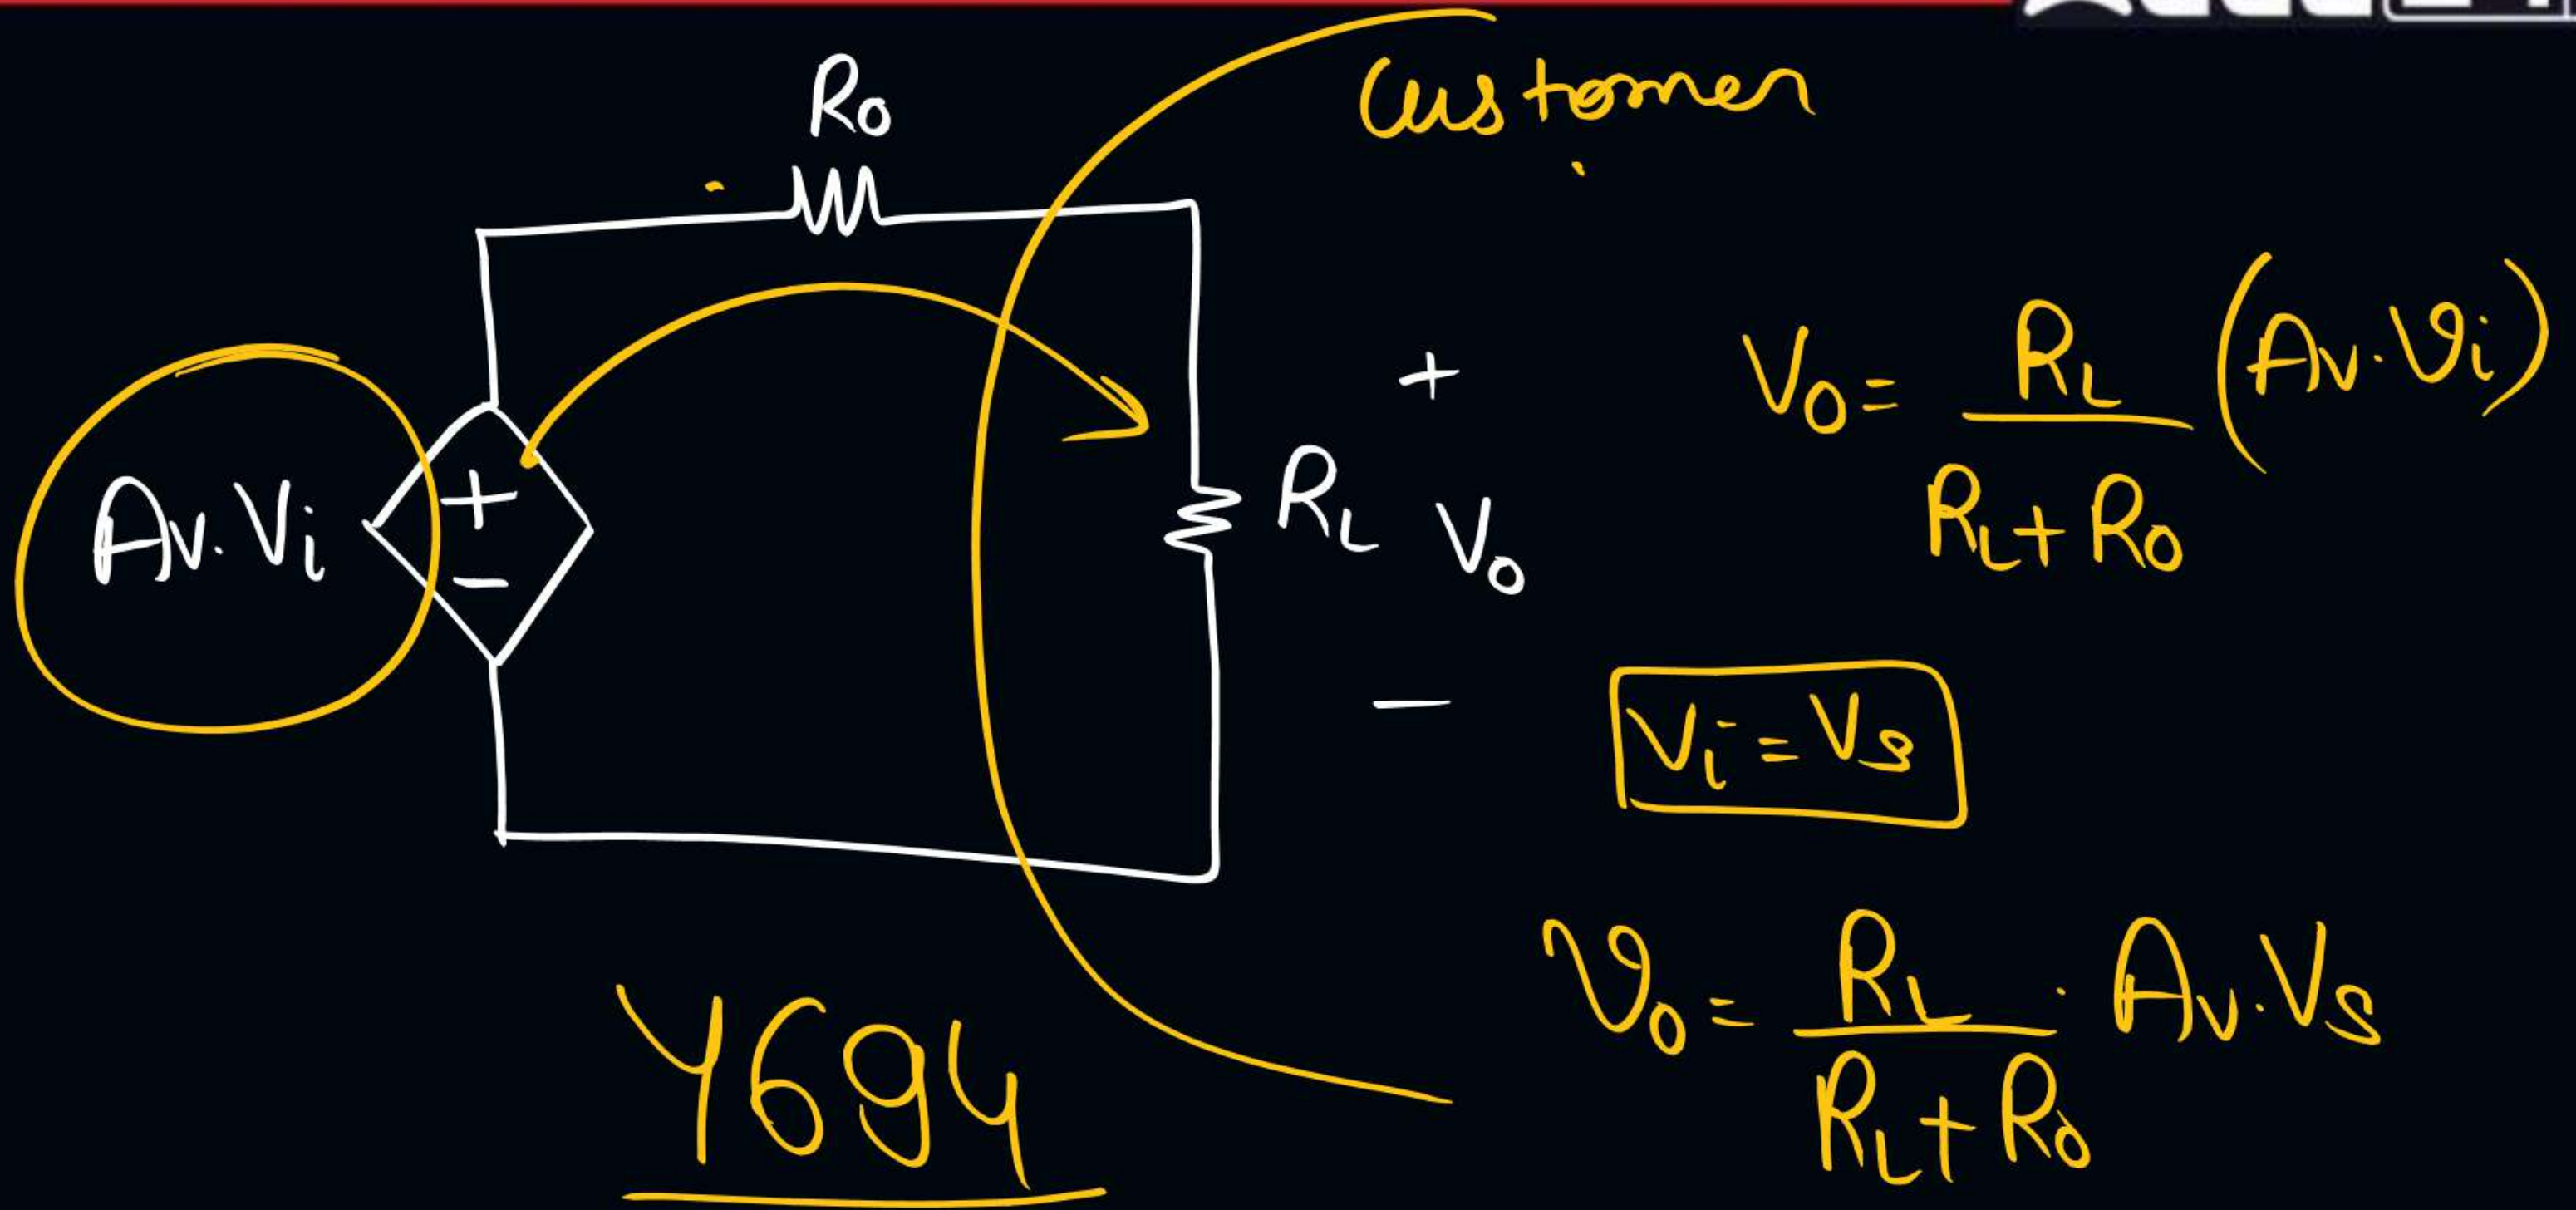 Customer
Ro
Av.Vi
+
-
+
RL Vo
-
Vo = RL / (RL + Ro) (Av.Vi)
Vi = Vs
Vo = RL / (RL + Ro) . Av.Vs
Y694